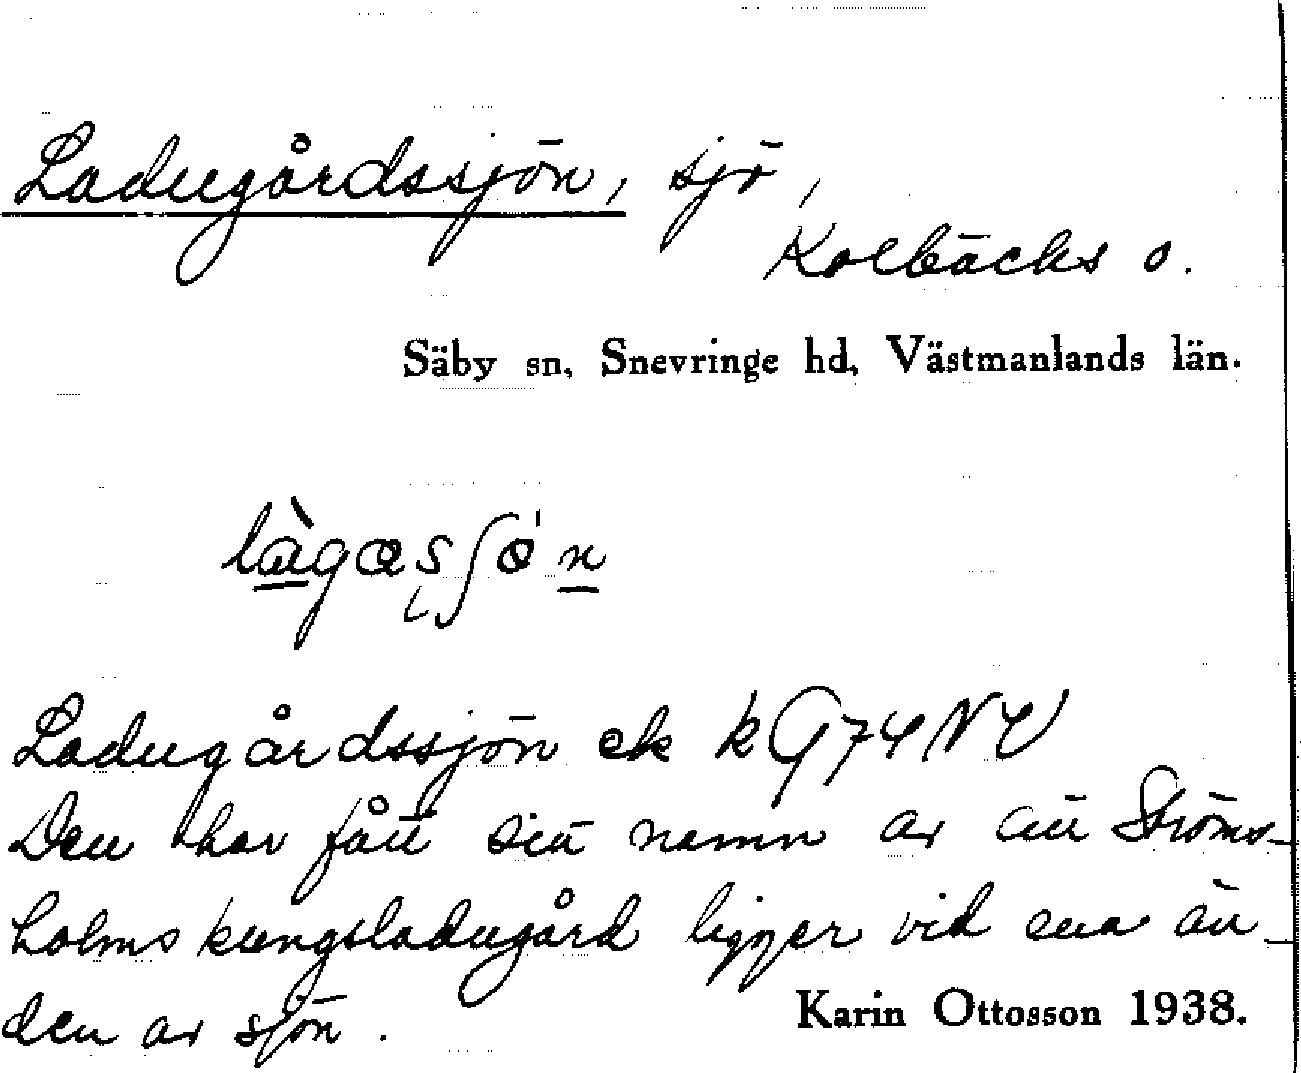 Ladugårdssjön, sjö,
Kolbäcks o.
Säby sn, Snevringe hd, Västmanlands län.
Ladugårdssjön ek k G74NV
Den har fått sitt namn av att Ströms-
holms kungsladugård ligger vid ena än-
den av sjön.
Karin Ottosson 1938.